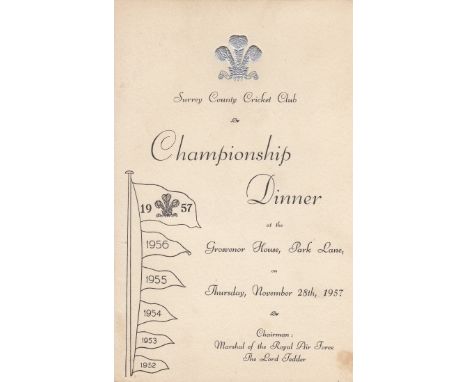 Surrey County Cricket Club
Championship
Dinner
at the
Grosvenor House, Park Lane,
on
Thursday, November 28th, 1957
Chairman:
Marshal of the Royal Air Force
The Lord Tedder
1957
1956
1955
1954
1953
1952